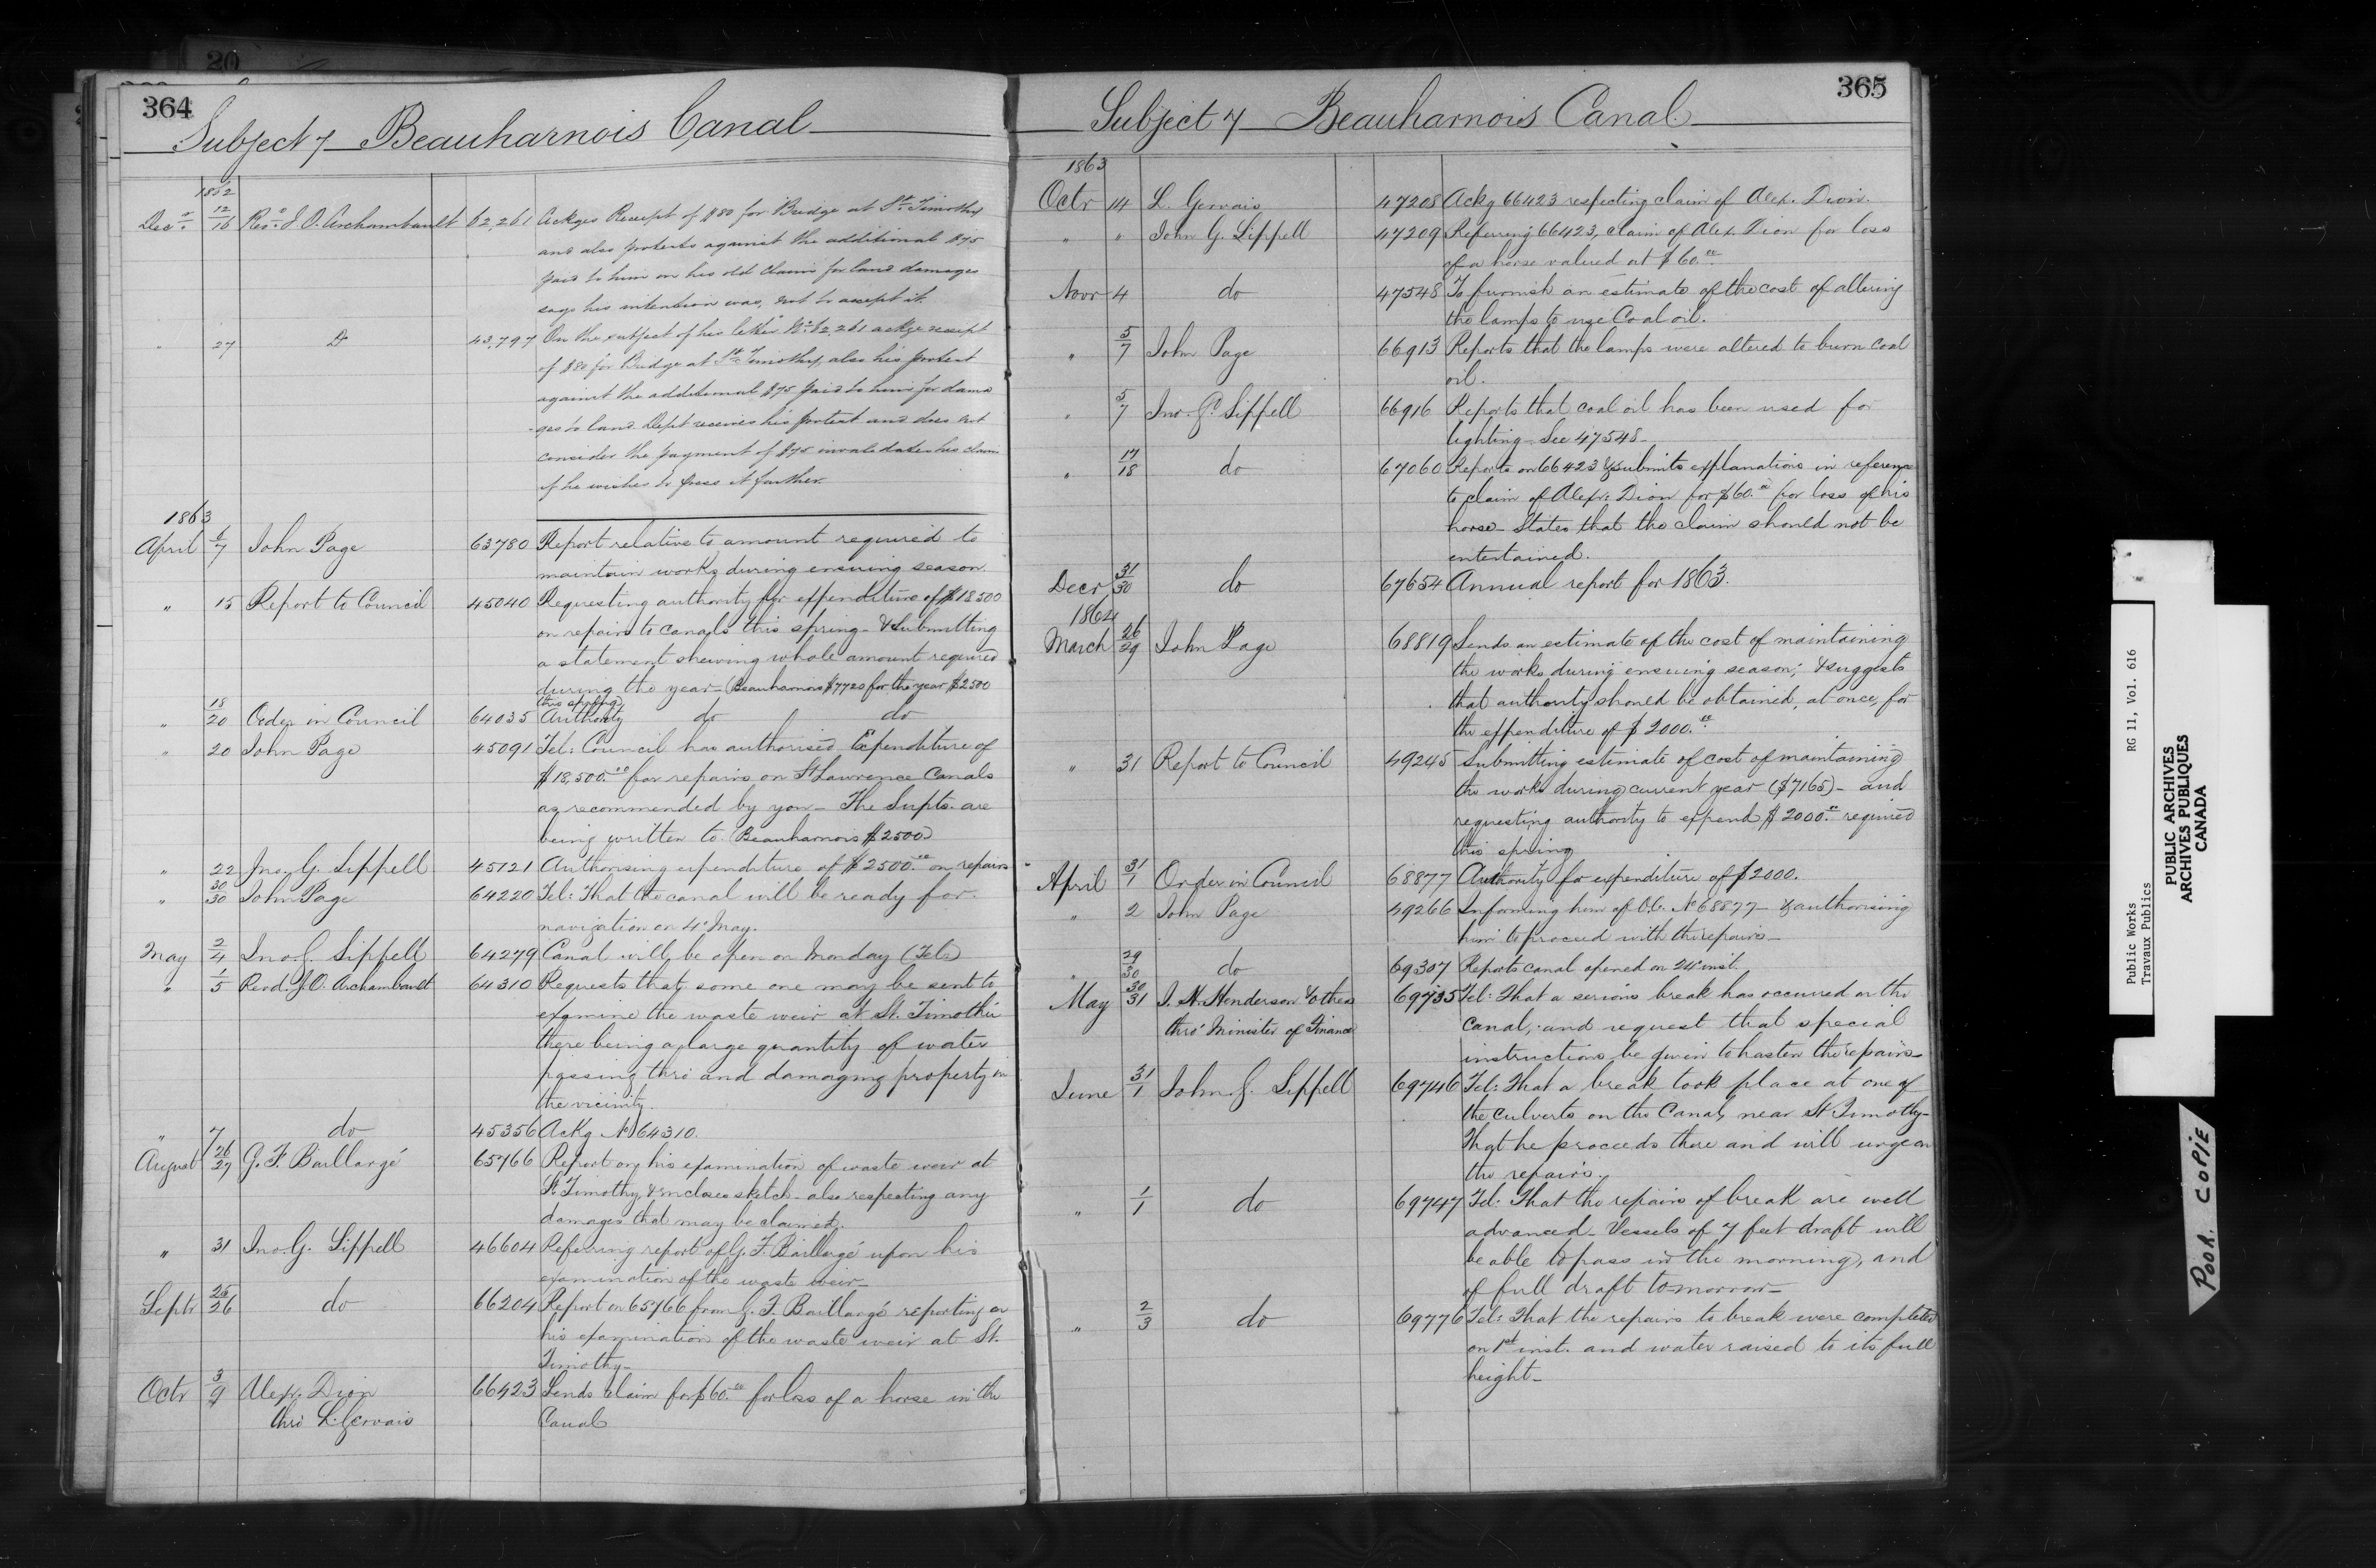 20
364
Subject 7 Beauharnois Canal
1862
Decr. 12/16 Revd. J. O. Archambault 62,261 Ackges Receipt of $80 for Bridge at St. Timothy
and also protests against the additional $75
paid to him on his old claim for land damages
says his intention was, not to accept it.
" 27 Do 43,797 On the subject of his letter No. 62,261 ackge receipt
of $80 for Bridge at St. Timothy also his protest
against the additional $75 paid to him for dama
ges to land. Dept receives his protest and does not
consider the payment of $75 invalidates his claim
if he wishes to press it further.
1863
April 6/7 John Page 63780 Report relative to amount required to
maintain works during ensuing season.
" 15 Report to Council 45040 Requesting authority for expenditure of $18500
on repairs to canals this spring - & submitting
a statement shewing whole amount required
during the year - (Beauharnois $7720 for the year $2500
this spring)
" 18/20 Order in Council 64035 Authority do do
" 20 John Page 45091 Tel: Council has authorised Expenditure of
$18,500.00 for repairs on St Lawrence Canals
as recommended by you - The Supts. are
being written to. (Beauharnois $2500)
" 22 Jno. G. Sippell 45121 Authorising expenditure of $2500.00 on repairs
" 30/30 John Page 64220 Tel: That the canal will be ready for
navigation on 4th May.
May 2/4 Jno. G. Sippell 64279 Canal will be open on Monday (Tel:)
" 1/5 Revd. J. O. Archambault 64310 Requests that some one may be sent to
examine the waste weir at St. Timothée
there being a large quantity of water
passing thro' and damaging property in
the vicinity.
" 7 do 45356 Ackg No 64310.
August 26/27 G. F. Baillargé 65766 Report on his examination of waste weir at
St. Timothy, & encloses sketch - also respecting any
damages that may be claimed.
" 31 Jno. G. Sippell 46604 Referring report of G. F. Baillargé upon his
examination of the waste weir -
Septr 25/26 do 66204 Report on 65766 from G. F. Baillargé reporting on
his examination of the waste weir at St.
Timothy -
Octr 3/9 Alexr. Dion 66423 Sends claim for $60.00 for loss of a horse in the
thro' L. Gervais Canal
365
Subject 7 Beauharnois Canal.
1863
Octr 14 L. Gervais 47208 Ackg 66423 respecting claim of Alex. Dion.
" " John G. Sippell 47209 Referring 66423, claim of Alex. Dion for loss
of a horse valued at $60.00
Novr 4 do 47548 To furnish an estimate of the cost of altering
the lamps to use Coal oil.
" 5/7 John Page 66913 Reports that the lamps were altered to burn coal
oil.
" 5/7 Jno. G. Sippell 66916 Reports that coal oil has been used for
lighting - See 47548 -
" 17/18 do 67060 Reports on 66423 & submits explanations in reference
to claim of Alexr: Dion for $60.00 for loss of his
horse - States that the claim should not be
entertained.
Decr 31/30 do 67654 Annual report for 1863.
1864
March 26/29 John Page 68819 Sends an estimate of the cost of maintaining
the works during ensuing season; & suggests
that authority should be obtained, at once, for
the expenditure of $2000.00
" 31 Report to Council 49245 Submitting estimate of cost of maintaining
the works during current year ($7165) - and
requesting authority to expend $2000.00 required
this spring
April 31/1 Order in Council 68877 Authority for expenditure of $2000.
" 2 John Page 49266 Informing him of O.C. No 68877 - & authorising
him to proceed with the repairs -
" 29/30 do 69307 Reports canal opened on 24th inst.
May 30/31 J. H. Henderson & others 69735 Tel: That a serious break has occurred on the
thro' Minister of Finance canal, and request that special
instructions be given to hasten the repairs -
June 31/1 John G. Sippell 69746 Tel: That a break took place at one of
the culverts on the Canal, near St. Timothy -
That he proceeds there and will urge on
the repairs.
" 1/1 do 69747 Tel: That the repairs of break are well
advanced - Vessels of 7 feet draft will
be able to pass in the morning, and
of full draft to-morrow -
" 2/3 do 69776 Tel: That the repairs to break were completed
on 1st inst. and water raised to its full
height -
Public Works RG 11, Vol. 616
Travaux Publics
PUBLIC ARCHIVES
ARCHIVES PUBLIQUES
CANADA
POOR COPIE